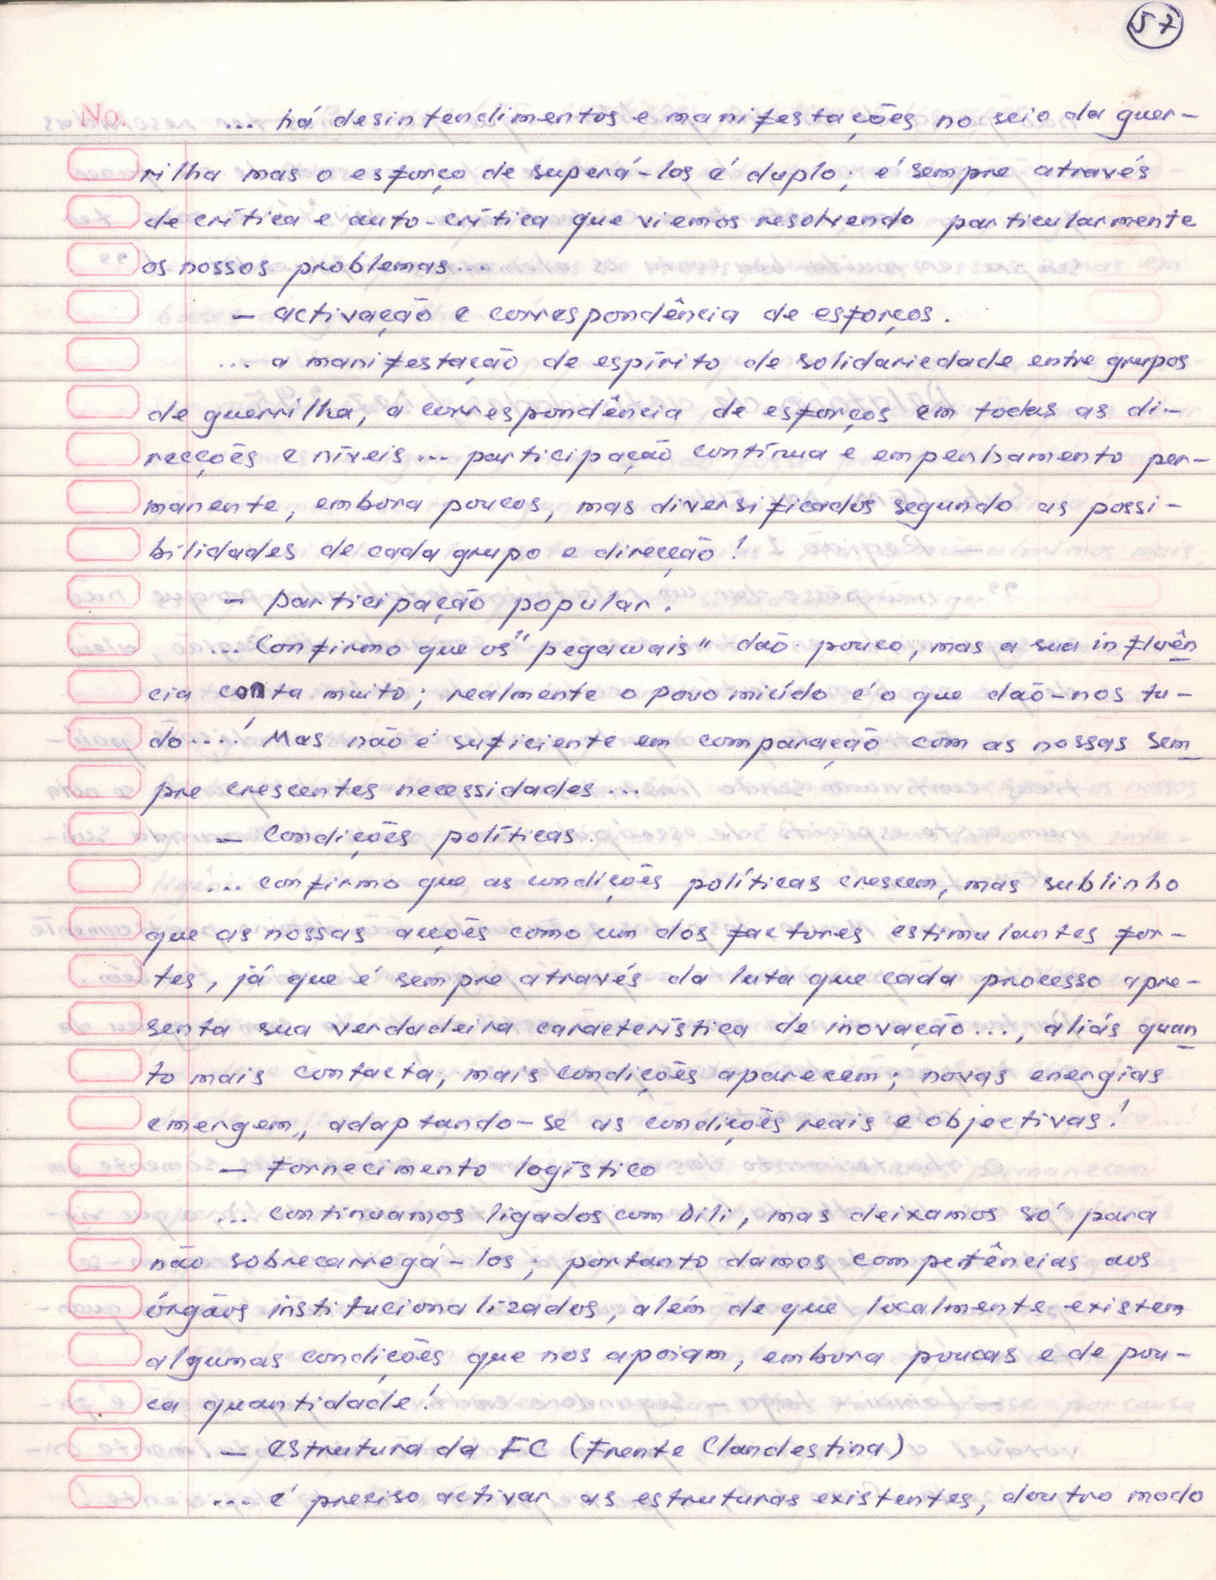 57
... há desintendimentos e manifestações no seio da guer-
rilha mas o esforço de superá-los é duplo; é sempre através
de crítica e auto-crítica que viemos resolvendo particularmente
os nossos problemas...
- activação e correspondência de esforços.
... a manifestação de espírito de solidariedade entre grupos
de guerrilha, a correspondência de esforços em todas as di-
recções e níveis... participação contínua e empenhamento per-
manente, embora poucos, mas diversificados segundo as possi-
bilidades de cada grupo e direcção!
- participação popular.
... Confirmo que os "pegawais" dão pouco, mas a sua influên
cia conta muito; realmente o povo miúdo é o que dão-nos tu-
do...! Mas não é suficiente em comparação com as nossas sem
pre crescentes necessidades...
- Condições políticas.
... confirmo que as condições políticas crescem, mas sublinho
que as nossas acções como um dos factores estimulantes for-
tes, já que é sempre através da luta que cada processo apre-
senta sua verdadeira característica de inovação..., aliás quan
to mais contacta, mais condições aparecem; novas energias
emergem, adaptando-se as condições reais e objectivas!
- fornecimento logístico
... continuamos ligados com Dili, mas deixamos só para
não sobrecarregá-los; portanto damos competências aos
órgãos institucionalizados, além de que localmente existem
algumas condições que nos apoiam, embora poucas e de pou-
ca quantidade!
- estrutura da FC (Frente Clandestina)
... é preciso activar as estruturas existentes, doutro modo